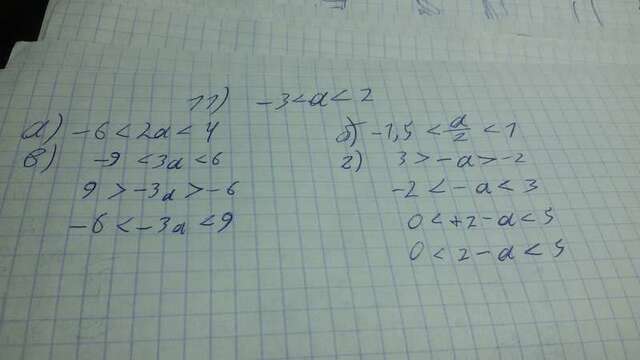 11) -3<a<2
а) -6<2a<4
б) -1,5<a/2<1
в) -9<3a<6
9>-3a>-6
-6<-3a<9
г) 3>-a>-2
-2<-a<3
0<+2-a<5
0<2-a<5